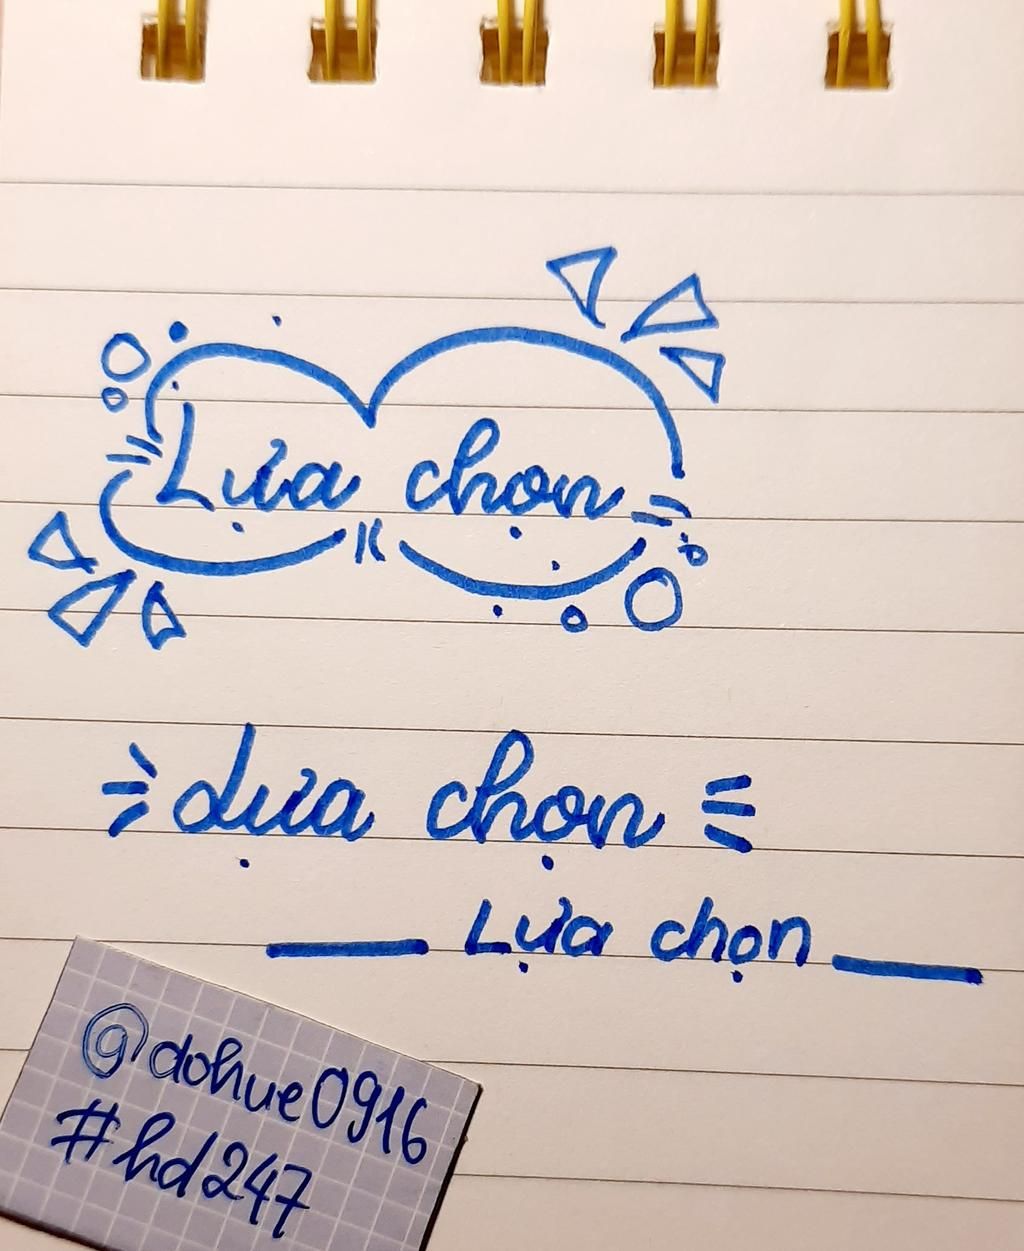 Lựa chọn
Lựa chọn
Lựa chọn
@dohue0916
#hd247